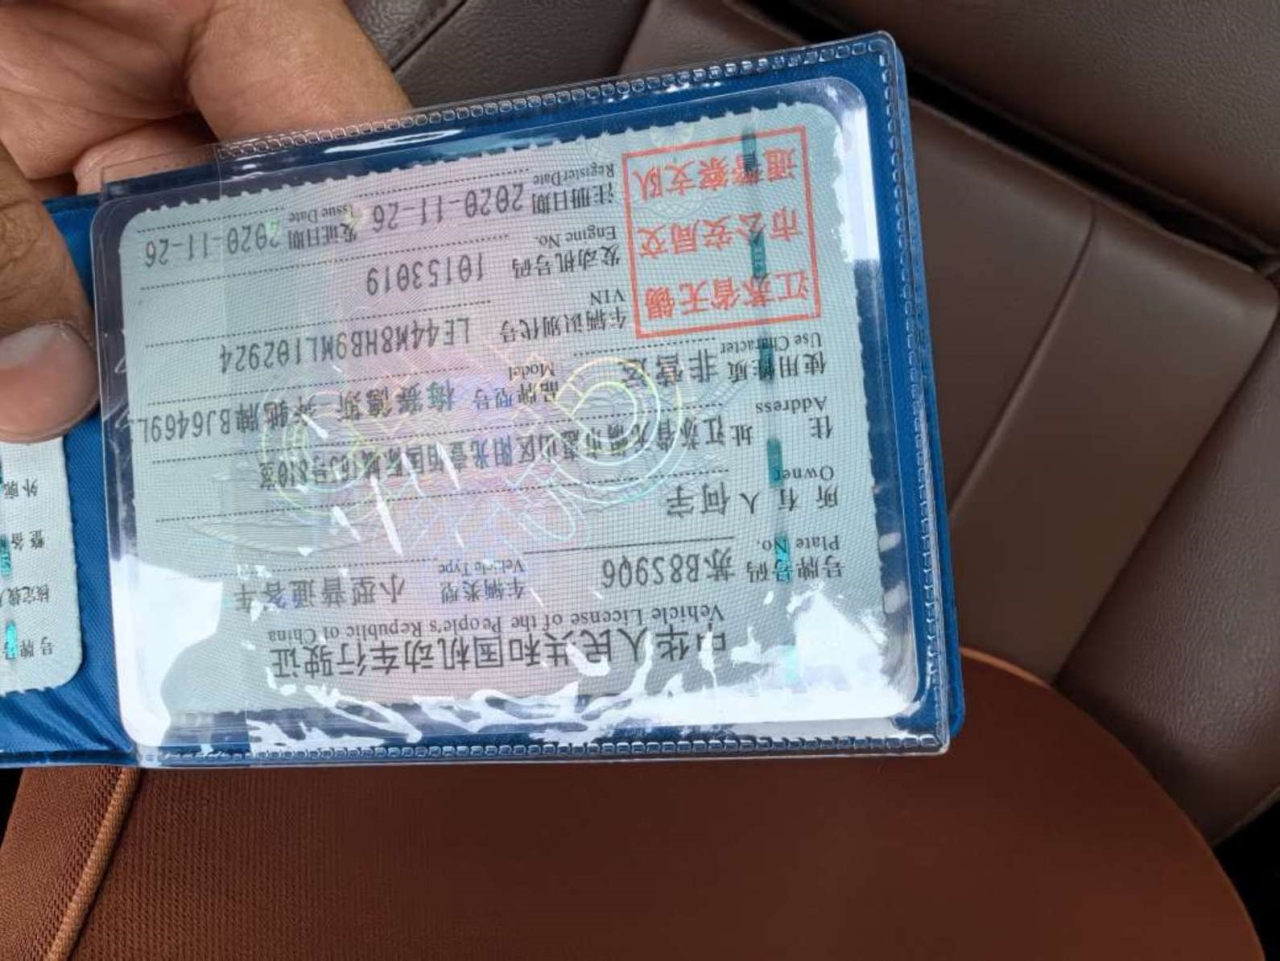 中华人民共和国机动车行驶证
Vehicle License of the People's Republic of China
号牌号码 苏B8S9Q6 车辆类型 小型普通客车
Plate No. Vehicle Type
所有人 何宇
Owner
住址 江苏省无锡市惠山区阳光壹佰国际城165号810室
Address
使用性质 非营运 品牌型号 梅赛德斯-奔驰牌BJ6469L
Use Character Model
江苏省无锡
市公安局交
通警察支队
车辆识别代号 LE44M8HB9ML102924
VIN
发动机号码 10153019
Engine No.
注册日期 2020-11-26 发证日期 2020-11-26
Register Date Issue Date
号牌号
核定载人
整备
外廓